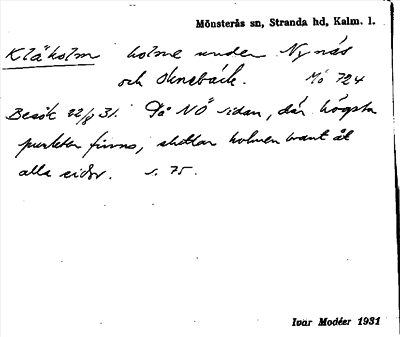 Mönsterås sn, Stranda hd, Kalm. l.
Kläholm holme under Nynäs
och Oknebäck. Mö 724
Besök 22/7 31. På NÖ sidan, där högsta
punkten finns, sluttar holmen brant åt
alla sidor. s. 75.
Ivar Modéer 1931